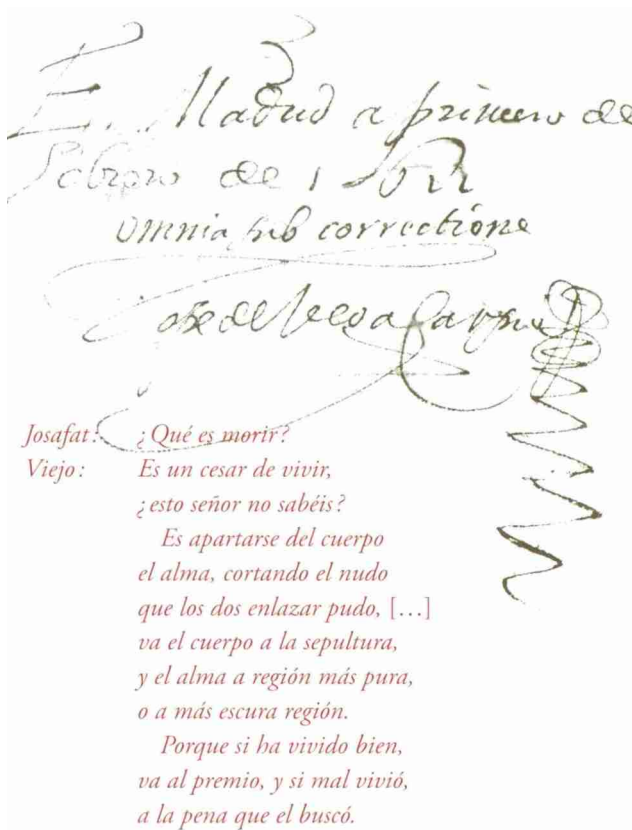 En Madrid a primero de
Febrero de 1611
omnia sub correctione
Lope de Vega Carpio
Josafat: ¿Qué es morir?
Viejo: Es un cesar de vivir,
¿esto señor no sabéis?
Es apartarse del cuerpo
el alma, cortando el nudo
que los dos enlazar pudo, […]
va el cuerpo a la sepultura,
y el alma a región más pura,
o a más escura región.
Porque si ha vivido bien,
va al premio, y si mal vivió,
a la pena que el buscó.